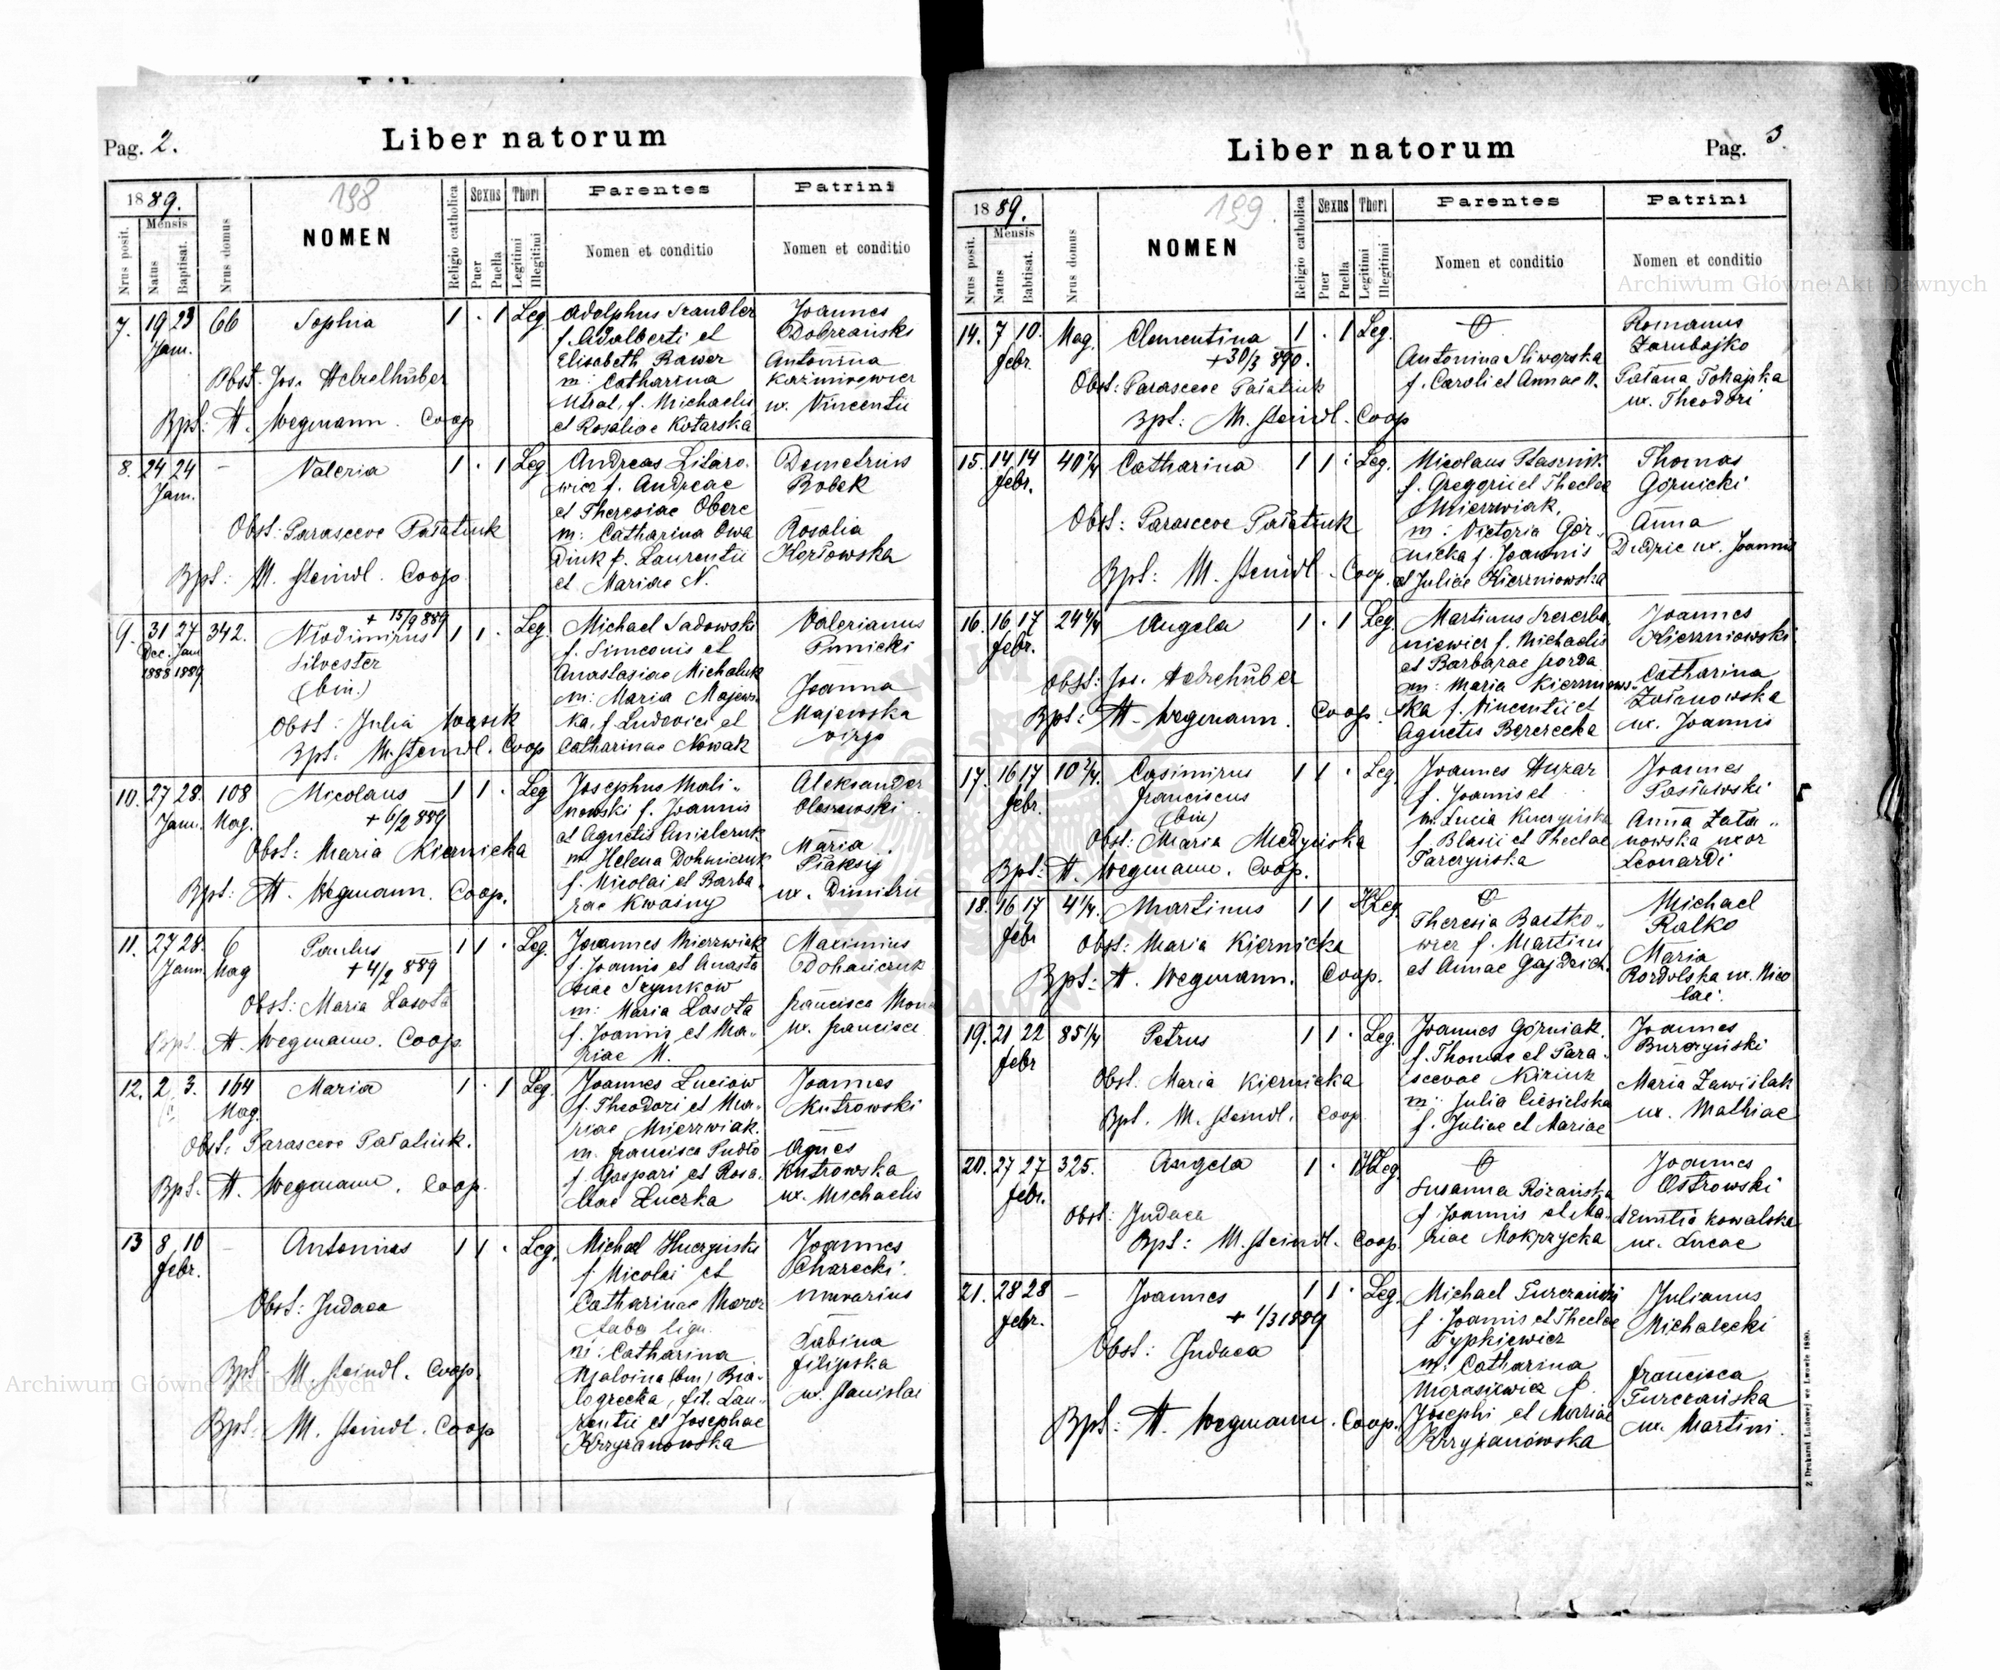 Pag. 2.
Liber natorum
1889.
Mensis
Nrus posit.
Natus
Baptisat.
Nrus domus
198
NOMEN
Religio catholica
Sexus
Puer
Puella
Thori
Legitimi
Illegitimi
Parentes
Nomen et conditio
Patrini
Nomen et conditio
7. 19 23 66 Sophia 1 . 1 Leg
Jan.
Obst. Jos. Hebelhuber
Bpt: A. Wegmann. Coop
Adolphus
f. Adalberti et
Elisabeth Bawer
m: Catharina
f. Michaelis
et Rosaliae Kotarska
Joannes
Dobrzański
Antonina
Kazimirewicz
ux. Vincentii
8. 24 24 - Valeria 1 . 1 Leg
Jan.
Obst: Parasceve
Bpt: M. Steindl. Coop
Andreas Litaro-
wicz f. Andreae
et Theresiae Oberc
m: Catharina Owa
Dink f. Laurentii
et Mariae N.
Demetrius
Bobek
Rosalia
Kozłowska
9. 31 27 342. + 15/9 889
Dec. Jan
1888 1889
Włodimirus 1 1 . Leg.
Silvester
(bin.)
Obst: Julia Wąsik
Bpt. M. Steindl. Coop
Michael Sadowski
f. Simeonis et
Anastasiae Michaluk
m: Maria Majews-
ka, f. Ludovici et
Catharinae Nowak
Valerianus
Punicki
Joanna
Majewska
virgo
10. 27 28. 108 Nicolaus 1 1 . Leg
Jan. Mag. + 6/2 889
Obst: Maria Kiernicka
Bpt: A. Wegmann. Coop.
Josephus Mali-
nowski f. Joannis
et Agnetis
m Helena Dohniczuk
f. Nicolai et Barba-
rae Kwaśny
Aleksander
Olszewski
Maria
ux. Dimitrii
11. 27 28. 6 Paulus 1 1 . Leg.
Jan. Mag + 4/2 889
Obst: Maria Lasota
Bpt. A. Wegmann. Coop
Joannes Mierzwiak
f. Joannis et Anasta
siae Szymków
m: Maria Lasota
f. Joannis et Ma-
riae N.
Maximius
Dohańczuk
Francisca
ux. Francisci
12. 2 3. 164 Maria 1 . 1 Leg.
Mag.
Obst. Parasceve
Bpt. A. Wegmann. Coop.
Joannes Luciow
f. Theodori et Ma-
riae Mierzwiak.
m. Francisca Pudło
f. Gaspari et Rosa-
liae Łuczka
Joannes
Kutrowski
Agnes
Kutrowska
ux. Michaelis
13 8 10 - Antonius 1 1 . Leg.
Febr.
Obst: Judaea
Bpt: M. Steindl. Coop
Bpt: M. Steindl. Coop
Michael
f Nicolai et
Catharinae Moroz
faber lign.
m: Catharina
Malvina (bin) Bia-
łogrecka, fil. Lau-
rentii et Josephae
Krzyżanowska
Joannes
Charecki
murarius
Sabina
Filipska
ux. Stanislai
Liber natorum
Pag. 3.
1889.
Mensis
Nrus posit.
Natus
Babtisat.
Nrus domus
199.
NOMEN
Religio catholica
Sexus
Puer
Puella
Thori
Legitimi
Illegitimi
Parentes
Nomen et conditio
Patrini
Nomen et conditio
14. 7 10. Mag. Clementina 1 . 1 Leg.
Febr. + 30/3 890.
Obst: Parasceve
Bpt: M. Steindl. Coop
Antonina Śliworska
f. Caroli et Annae N.
Romanus
Zarubajko
Tatiana Tokajska
ux. Theodori
15. 14 14 40 2/4 Catharina 1 1 . Leg.
Febr.
Obst: Parasceve
Bpt: M. Steindl. Coop.
Nicolaus Ptasznik
f. Gregorii et Theclae
Mierzwiak.
m: Victoria Gór-
nicka f. Joannis
et Juliae Kierzniowska
Thomas
Górnicki
Anna
Dudzic ux. Joannis
16. 16 17 24 4/4 Angela 1 . 1 Leg
Febr.
Obst: Jos. Hebelhuber
Bpt: A. Wegmann. Coop.
Martinus Szczerba
niewicz f. Michaelis
et Barbarae
m: Maria Kierzniows-
ka f. Vincentii et
Agnetis Berezecka
Joannes
Kierzniowski
Catharina
ux. Joannis
17. 16 17 10 2/4. Casimirus 1 1 . Leg
Febr. Franciscus
(bin)
Obst: Maria Medyńska
Bpt: A. Wegmann. Coop.
Joannes Huzar
f. Joannis et
m. Lucia
f. Blasii et Theclae
Tarczyńska
Joannes
Anna Zała-
nowska uxor
Leonardi
18. 16 17 4 1/4. Martinus 1 1 Leg.
Febr
Obst: Maria Kiernicka
Bpt: A. Wegmann. Coop.
Theresia Bartko-
wicz f. Martini
et Annae
Michael
Ralko
Maria
Rozdolska ux. Nico
lai.
19. 21 22 85 1/4 Petrus 1 1 . Leg.
Febr
Obst. Maria Kiernicka
Bpt. M. Steindl. Coop.
Joannes Górniak.
f. Thomae et Para-
scevae
m: Julia Ciesielska
f. Juliae et Mariae
Joannes
Burczyński
Maria Zawiślak
ux. Mathiae
20. 27 27 325. Angela 1 . 1 Leg
Febr.
Obst: Judaea
Bpt: M. Steindl. Coop.
Susanna Różańska
f. Joannis et Ma-
riae Mokrzycka
Joannes
Ostrowski
Aemilia Kowalska
ux. Lucae
21. 28 28 - Joannes 1 1 . Leg.
Febr. + 1/3 1889
Obst: Judaea
Bpt: A. Wegmann. Coop.
Michael Turczański
f. Joannis et Theclae
Typkiewicz
m: Catharina
Morasiewicz f.
Josephi et Mariae
Krzyżanowska
Julianus
Michalecki
Francisca
Turczańska
ux. Martini.
Z Drukarni Ludowej we Lwowie 1880.
Archiwum Główne Akt Dawnych
Archiwum Główne Akt Dawnych